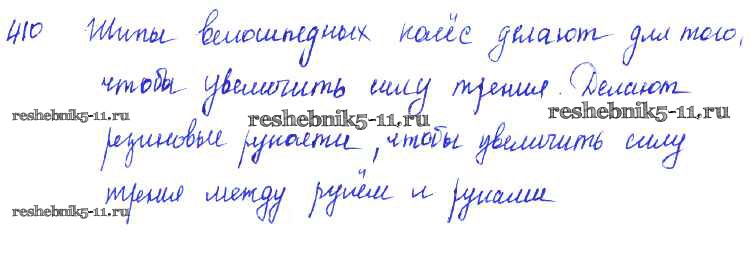 410 Шипы велосипедных колёс делают для того,
чтобы увеличить силу трения. Делают
reshebnik5-11.ru reshebnik5-11.ru reshebnik5-11.ru
резиновые рукоятки, чтобы увеличить силу
трения между рулём и руками
reshebnik5-11.ru